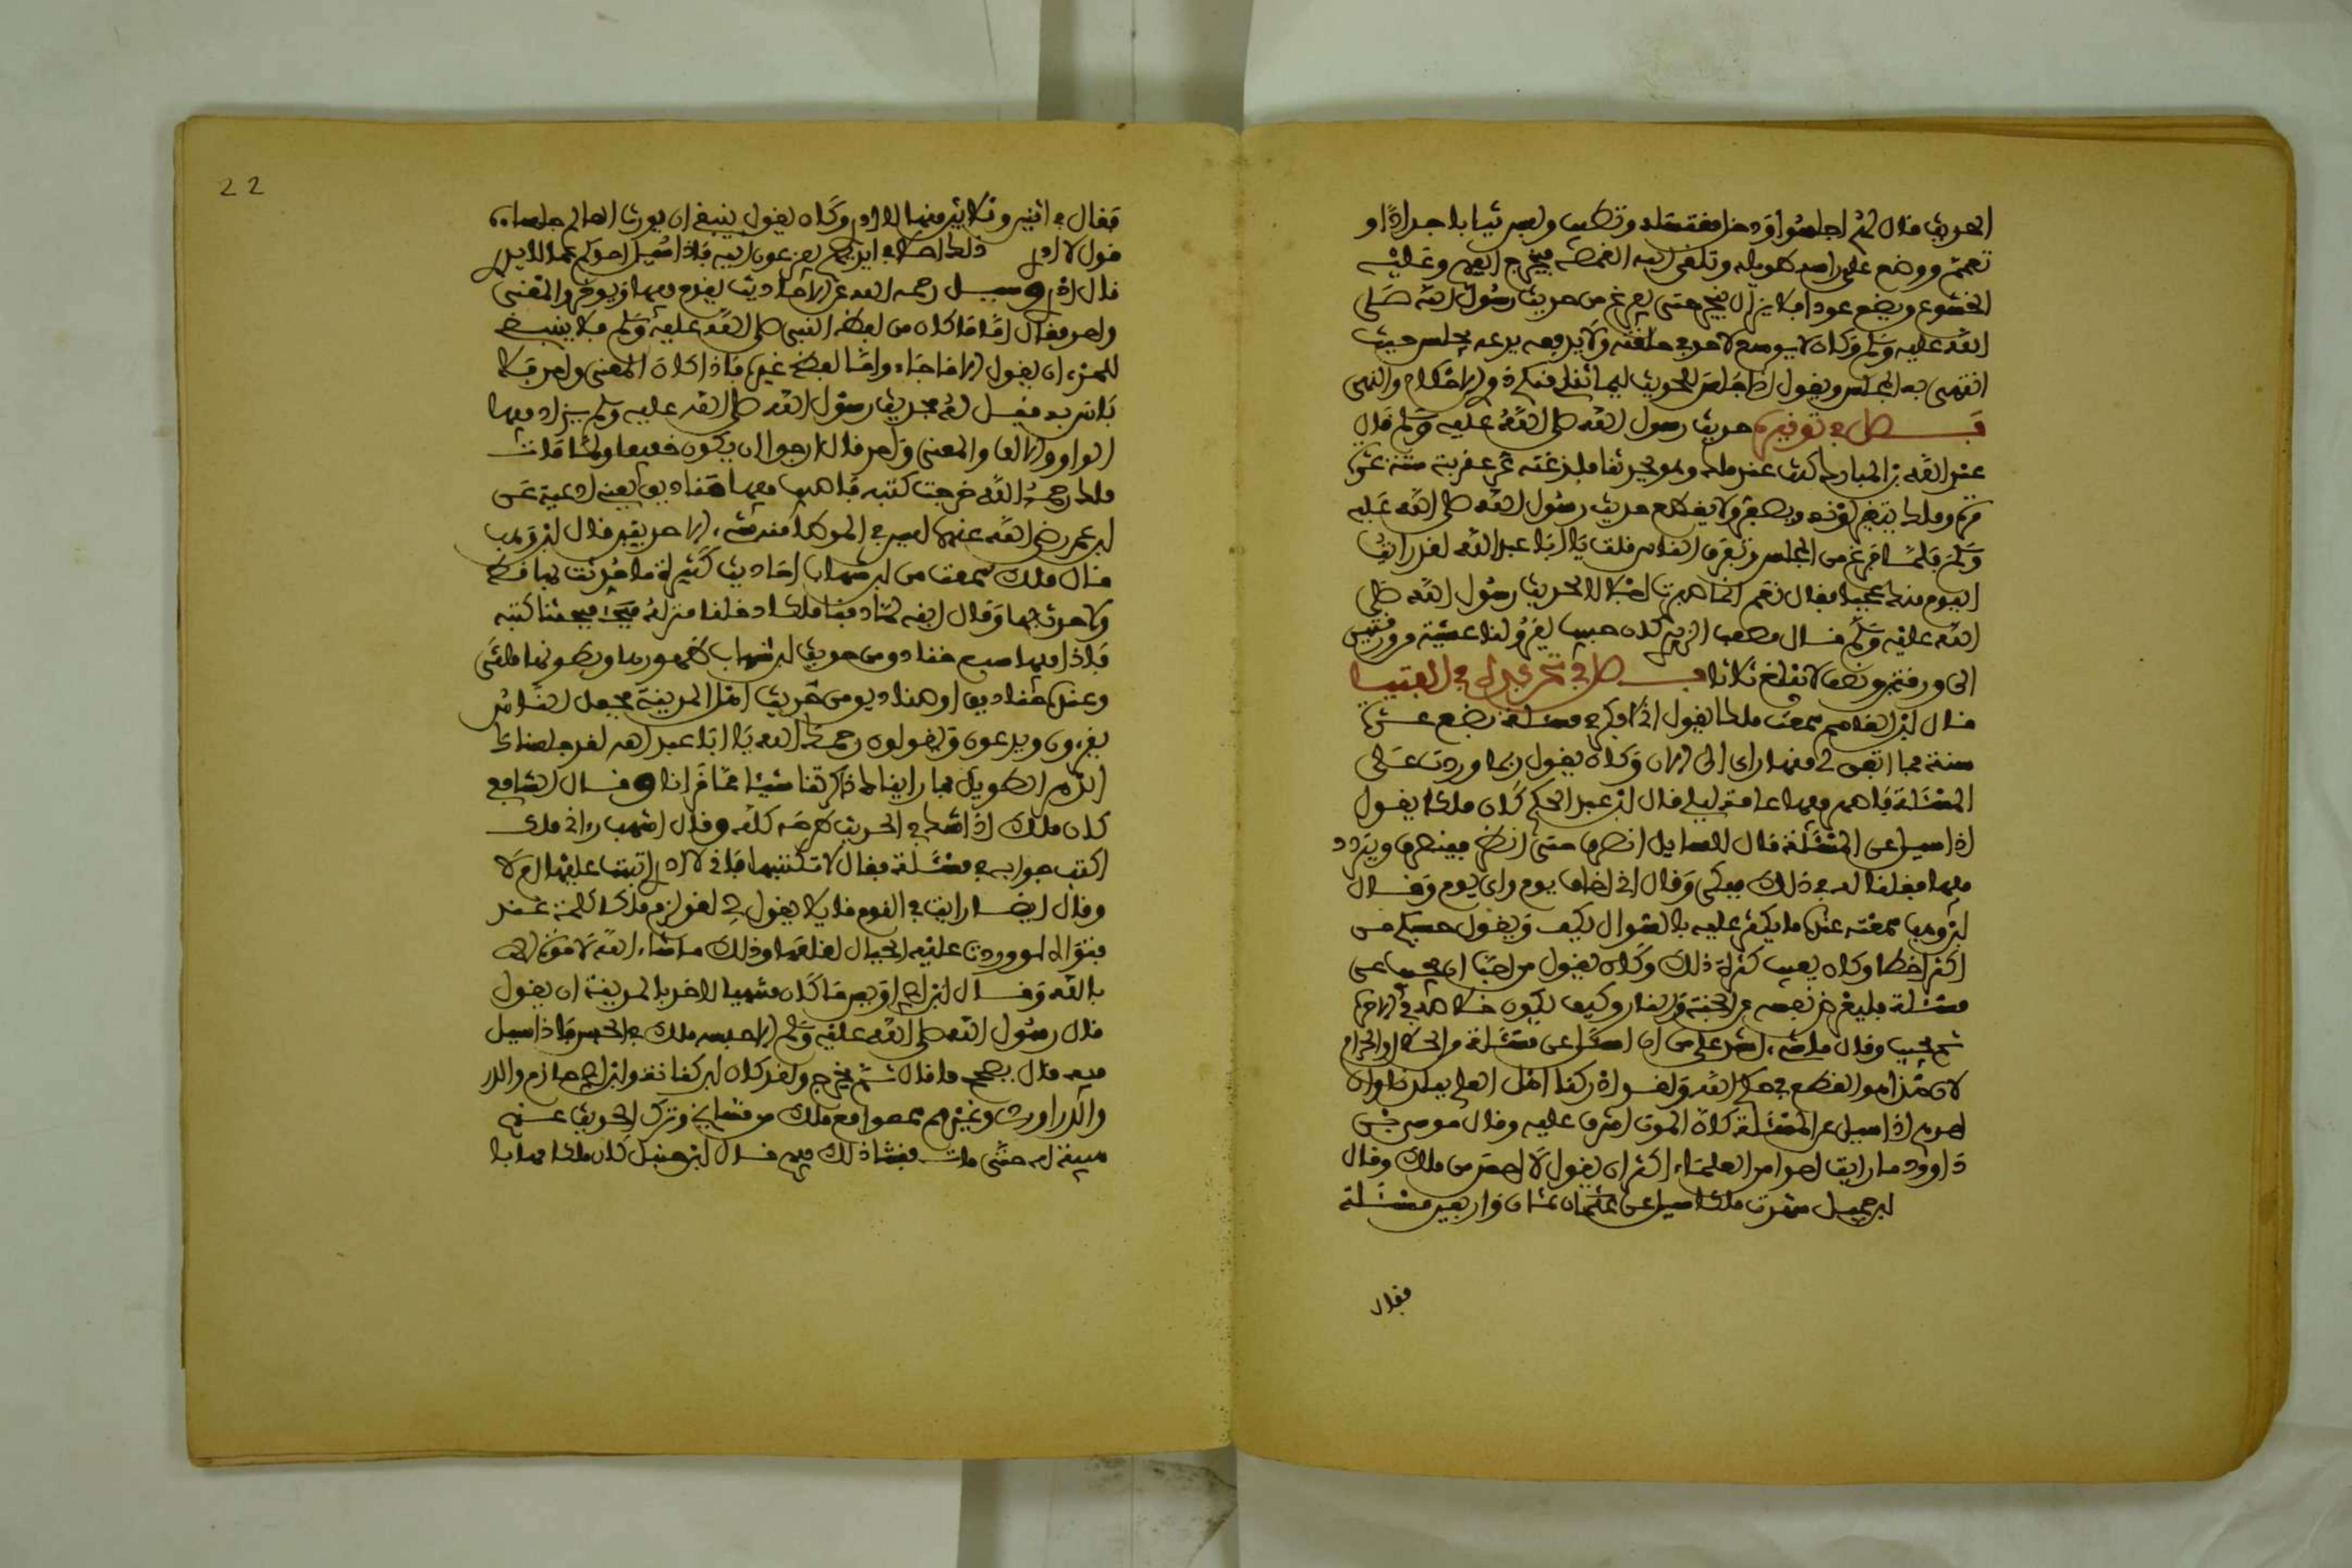 الحديث قال لهم اجلسوا ودخل مغتسله وتطيب ولبس ثيابا جددا او
تعمم ووضع على راسه طويلة وتلقى اليه المنصة فيخرج اليهم وعليه
الخشوع ويضع عودا فلا يزال يبخر حتى يفرغ من حديث رسول الله صلى
الله عليه وسلم وكان لا يوسع لاحد في حلقته ولا يرفعه يدعه يجلس حيث
انتهى به المجلس ويقول اذا جلس للحديث ليلني منكم ذو الاحلام والنهى
فصل في توقيره حديث رسول الله صلى الله عليه وسلم قال
عبد الله بن المبارك كنت عند ملك وهو يحدثنا فلدغته عقربة ستة عشر
مرة وملك يتغير لونه ويصفر ولا يقطع حديث رسول الله صلى الله عليه
وسلم فلما فرغ من المجلس وتفرق الناس قلت يا ابا عبد الله لقد رايت
اليوم منك عجبا فقال نعم انما صبرت اجلالا لحديث رسول الله صلى
الله عليه وسلم قال مصعب الزبيري كان حبيب يقرؤ لنا عشية من ورقتين
الى ورقتين ونصف لا تبلغ ثلاثا فصل في تحريه في الفتيا
قال ابن القاسم سمعت ملكا يقول اني لافكر في مسئلة بضع عشرة
سنة فما اتفق لي فيها راي الى الان وكان يقول ربما وردت علي
المسئلة فاسهر فيها عامة ليلي قال ابن عبد الحكم كان ملك يقول
اذا سيل عن المسئلة قال للسايل انصرف حتى انظر فينصرف ويتردد
فيها فقلنا له في ذلك فبكى وقال اني اخاف يوم واي يوم وقال
ابن وهب سمعته عندما يكثر عليه بالسوال يكف ويقول حسبكم من
اكثر اخطا وكان يعيب كثرة ذلك وكان يقول من احب ان يجيب عن
مسئلة فليعرض نفسه على الجنة والنار وكيف يكون خلاصه في الاخرة
ثم يجيب وقال ما شيء اشد علي من ان اسئل عن مسئلة من الحلال والحرام
لان هذا هو القطع في حكم الله ولقد ادركنا اهل العلم ببلدنا وان
احدهم اذا سيل عن المسئلة كان الموت اشرف عليه وقال موسى بن
داوود ما رايت احدا من العلماء اكثر ان يقول لا احسن من ملك وقال
ابن جميل شهدت ملكا سيل عن ثمان واربعين مسئلة
فقال
22
فقال في اثنين وثلاثين منها لا ادري وكان يقول ينبغي ان يورث العالم جلساءه
قول لا ادري ذلك اصلا في ايديهم يفزعون اليه فاذا سيل احدكم عما لا يدري
قال لا ادري وسيل رحمه الله عن الاحاديث يقدم فيها ويوخر والمعنى
واحد فقال اما ما كان من لفظ النبي صلى الله عليه وسلم فلا ينبغي
للمرء ان يقول الا كما جاء واما لفظ غيره فاذا كان المعنى واحد فلا
باس به فقيل له فحديث رسول الله صلى الله عليه وسلم يزاد فيها
الواو والالف والمعنى واحد قال ارجو ان يكون خفيفا ولما مات
ملك رحمه الله خرجت كتبه فاصيب فيها فنادق يعني اوعية عن
ابن عمر رضي الله عنهما ليس في الموطا منه شيء الا حديثين قال ابن وهب
قال ملك سمعت من ابن شهاب احاديث كثيرة ما حدثت بها قط
ولا احدث بها وقال ابنه لما دفنا ملكا دخلنا منزله فاخرجنا كتبه
فاذا فيها سبع فنادق من حديث ابن شهاب ظهورها وبطونها ملئى
وعنده فنادق او صناديق من حديث اهل المدينة فجعل الناس
يقرءون ويدعون ويقولون رحمك الله يا ابا عبد الله لقد جلسناك
الدهر الطويل فما رايناك ذاكرتنا شيئا مما قرانا وقال الشافعي
كان ملك اذا شك في الحديث طرحه كله وقال اشهب راني ملك
اكتب جوابه في مسئلة فقال لا تكتبها فاني لا ادري اثبت عليها ام لا
وقال ايضا رايت في النوم قايلا يقول لي لقد لزم ملك كلمة عند
فتواه لو وردت عليه الجبال لقلعها وذلك ما شاء الله لا قوة الا
بالله وقال ابن ابي اويس ما كان يتهيا لاحد بالمدينة ان يقول
قال رسول الله صلى الله عليه وسلم الا حبسه ملك في الحبس فاذا سيل
فيه قال يصحح ما قال ثم يخرج ولقد كان ابن كنانة وابن ابي حازم والدر
والدراوردي وغيرهم سمعوا مع ملك من مشايخ وترك الحديث عنهم
هيبة له حتى مات ففشا ذلك فيهم قال ابن حنبل كان ملك مهابا